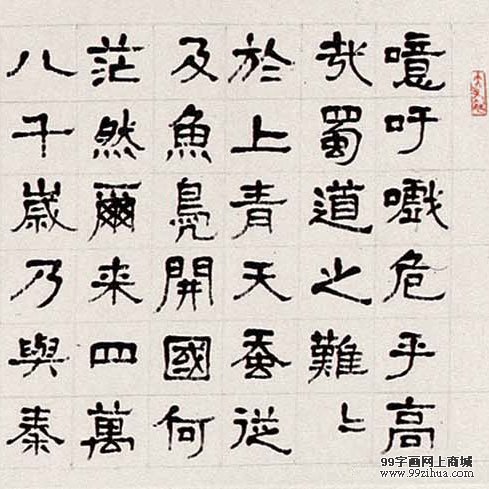 噫吁嚱危乎高
哉蜀道之難〻
於上青天蚕從
及魚鳧開國何
茫然爾来四萬
八千歲乃與秦
99字画网上商城
www.99zihua.com